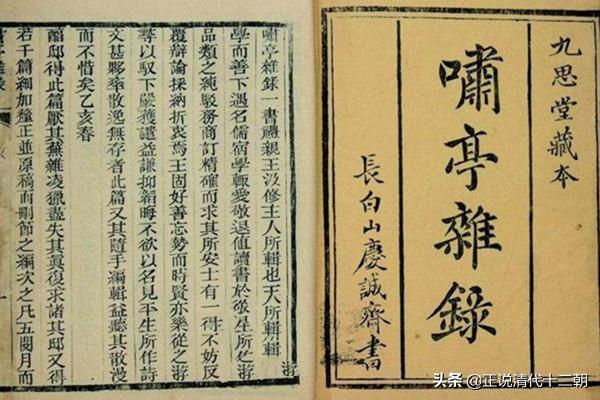 九思堂藏本
嘯亭雜錄
長白山慶誠齋書
嘯亭雜錄一書禮親王汲修主人所輯也
學而善下遇名儒宿學輒愛敬退值讀書於
品類之純駁務商訂精確而求其所安士有一得不妨反
覆辯論採納折衷焉王固好善忘勢而時賢亦樂從之游
尋以馭下嚴獲譴益謙抑韜晦不欲以名見平生所作詩
文甚夥率散逸無存者此篇又其隨手編輯益聽其散漫
而不惜矣乙亥春
邸得此篇厭其蕪雜凌獵盡失其真復求諸其邸又得
若干篇細加釐正並原稿而刪節之編次之凡五閱月而
头条 @正说清代十二朝